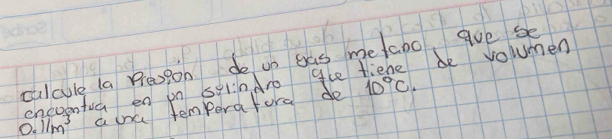 calcule la Presion de un gas metano que se
encuentra en un silindro que tiene de volumen
0.11m³ a una temperatura de 10°C.